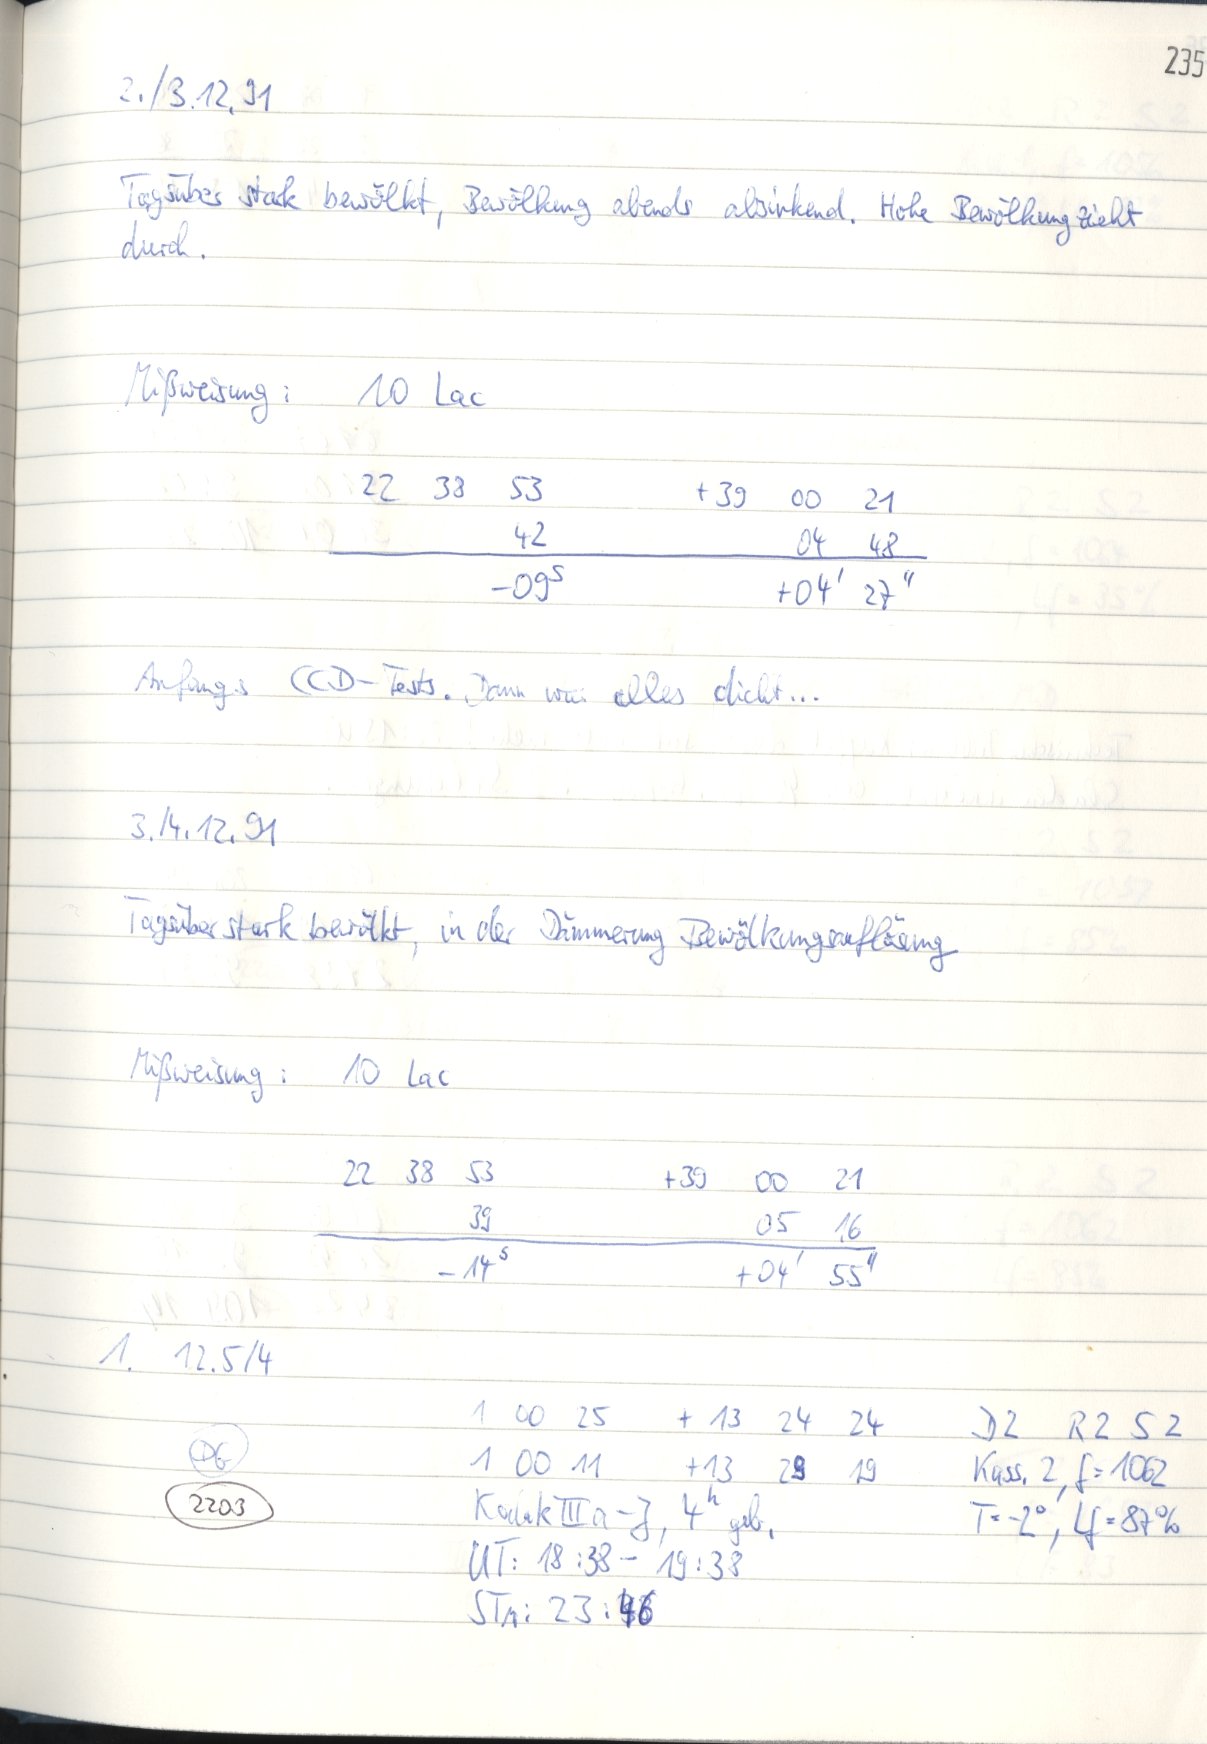 235
2./3.12.91
Tagsüber stark bewölkt, Bewölkung abends absinkend. Hohe Bewölkung zieht
durch.
Mißweisung: 10 Lac
22 38 53 +39 00 21
42 04 48
-09s +04' 27"
Anfangs CCD-Tests. Dann war alles dicht...
3./4.12.91
Tagsüber stark bewölkt, in der Dämmerung Bewölkungsauflösung
Mißweisung: 10 Lac
22 38 53 +39 00 21
39 05 16
-14s +04' 55"
1. 12.5/4
1 00 25 +13 24 24 D2 R2 S2
1 00 11 +13 29 19 Kass. 2, f=1062
2203 Kodak IIIa-J, 4h geb. T=-2°, Lf=87%
UT: 18:38 - 19:38
STA: 23:46